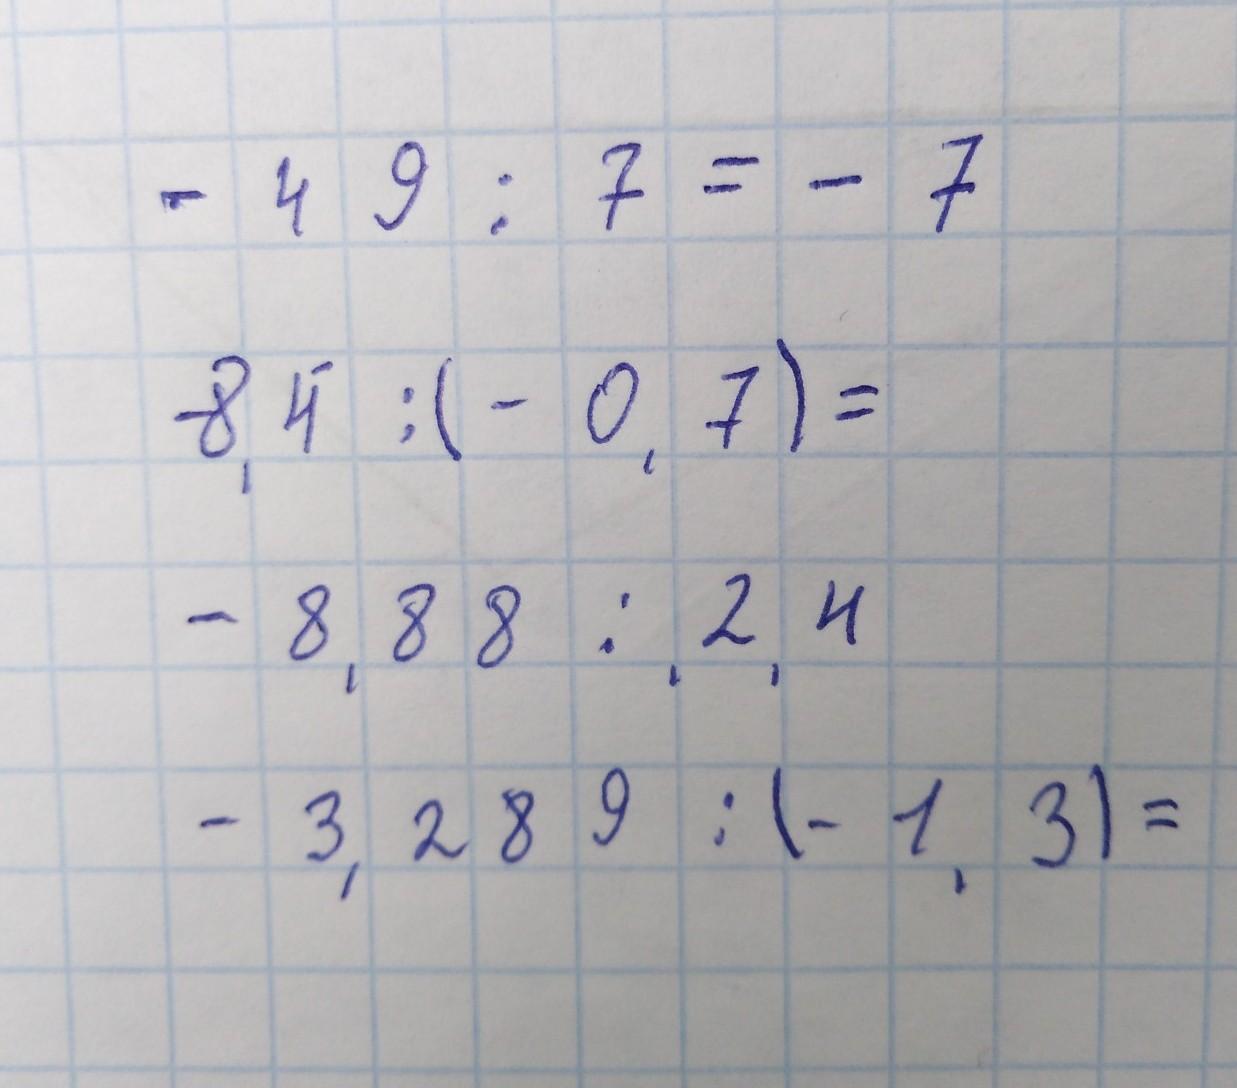 - 49 : 7 = - 7
-8,4 : (- 0,7) =
- 8,88 : ,2,4
- 3,289 : (- 1,3) =